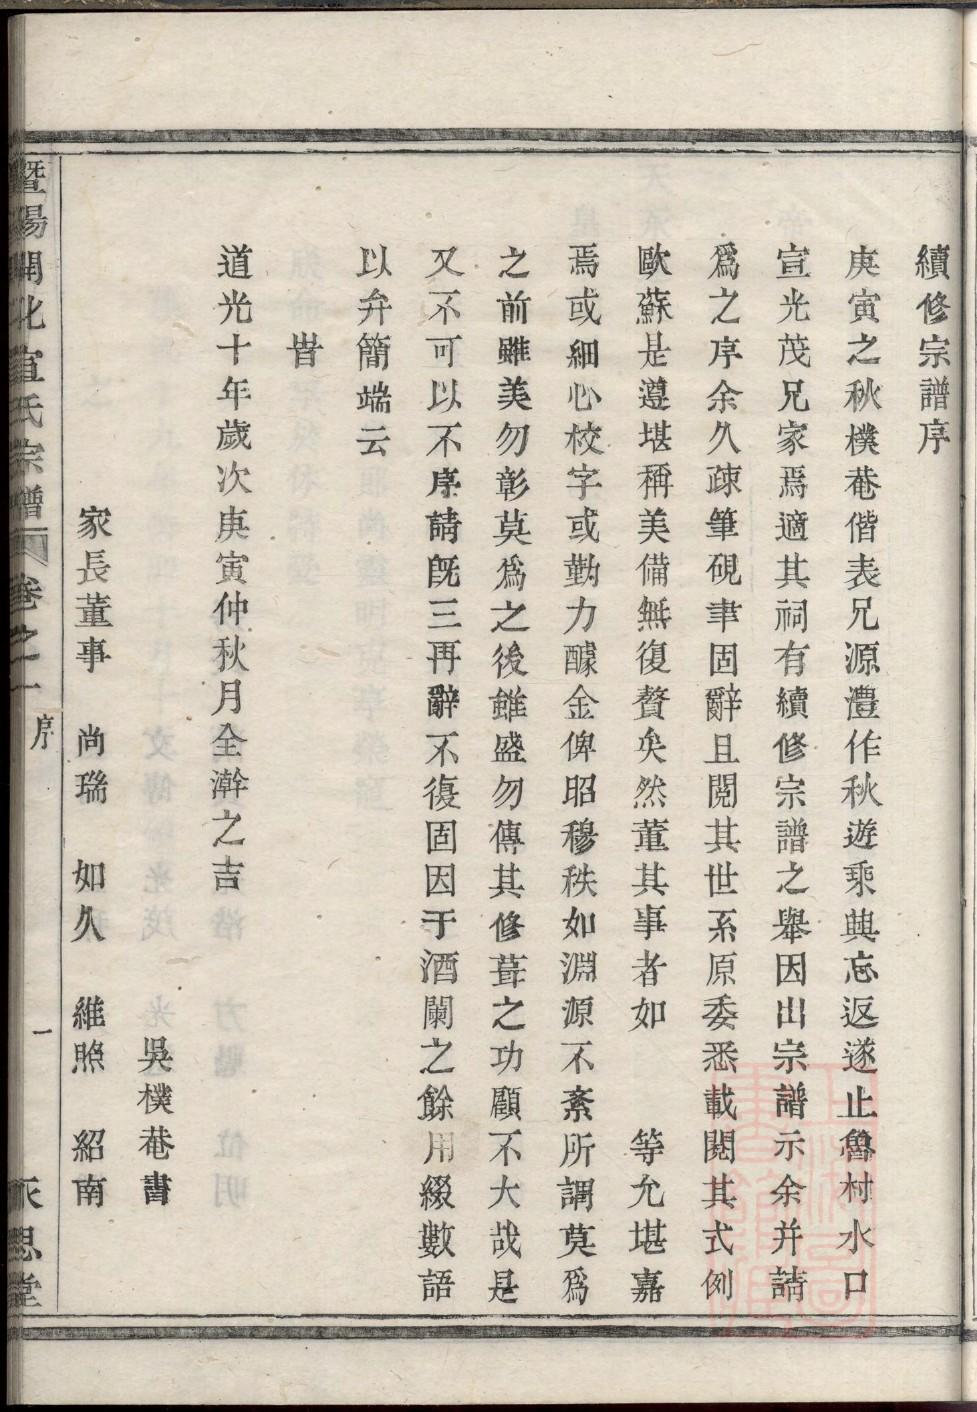 續修宗譜序
庚寅之秋樸菴偕表兄源澧作秋遊乘興忘返遂止魯村水口
宣光茂兄家焉適其祠有續修宗譜之舉因出宗譜示余并請
爲之序余久疎筆硯聿固辭且閱其世系原委悉載閱其式例
歐蘇是遵堪稱美備無復贅矣然董其事者如 等允堪嘉
焉或細心校字或勷力醵金俾昭穆秩如淵源不紊所謂莫爲
之前雖美勿彰莫爲之後雖盛勿傳其修葺之功顧不大哉是
又不可以不序請旣三再辭不復固因于酒闌之餘用綴數語
以弁簡端云
旹
道光十年歲次庚寅仲秋月全澣之吉
吳樸菴書
家長董事 尚瑞 如久 維照 紹南
暨陽開化宣氏宗譜 卷之一 序 一 永思堂